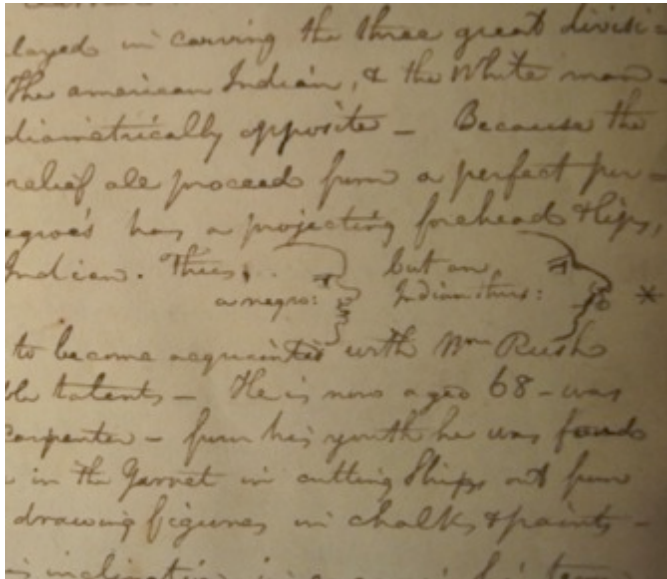 layed in carving the three great divisi
The american Indian, & the White man
diametrically opposite – Because the
relief all proceed from a perfect per-
egroe's has a projecting forehead & lips,
Indian. Thus,
a negro:
but an
Indian thus: *
to become acquainted with Wm Rush
ble talents – He is now aged 68 – was
carpenter – from his youth he was found
in the Garret in cutting Ships out from
drawing figures in chalks & paints –
inclination